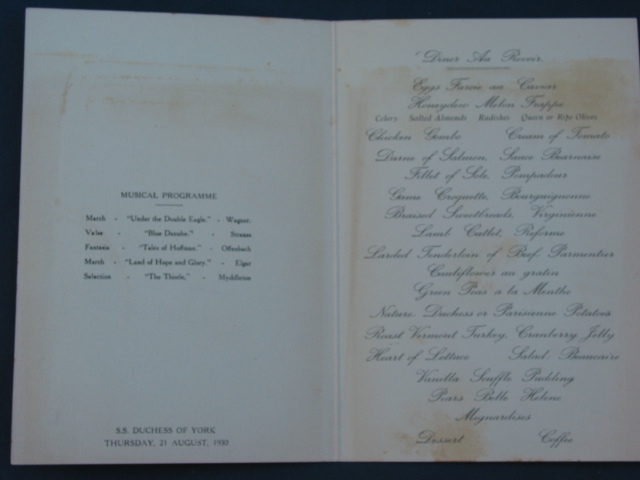 MUSICAL PROGRAMME
March - "Under the Double Eagle." - Wagner.
Valse - "Blue Danube." - Strauss
Fantasia - "Tales of Hoffman." - Offenbach
March - "Land of Hope and Glory." - Elgar
Selection - "The Thistle." - Myddleton
S.S. DUCHESS OF YORK
THURSDAY, 21 AUGUST, 1930
Diner Au Revoir
Eggs Farcie au Caviar
Honeydew Melon Frappe
Celery Salted Almonds Radishes Queen or Ripe Olives
Chicken Gumbo Cream of Tomato
Darne of Salmon, Sauce Bearnaise
Fillet of Sole, Pompadour
Game Croquette, Bourguignonne
Braised Sweetbreads, Virginienne
Lamb Cutlet, Reforme
Larded Tenderloin of Beef, Parmentier
Cauliflower au gratin
Green Peas a la Menthe
Nature, Duchess or Parisienne Potatoes
Roast Vermont Turkey, Cranberry Jelly
Heart of Lettuce Salad: Beaucaire
Vanilla Souffle Pudding
Pears Belle Helene
Mignardises
Dessert Coffee